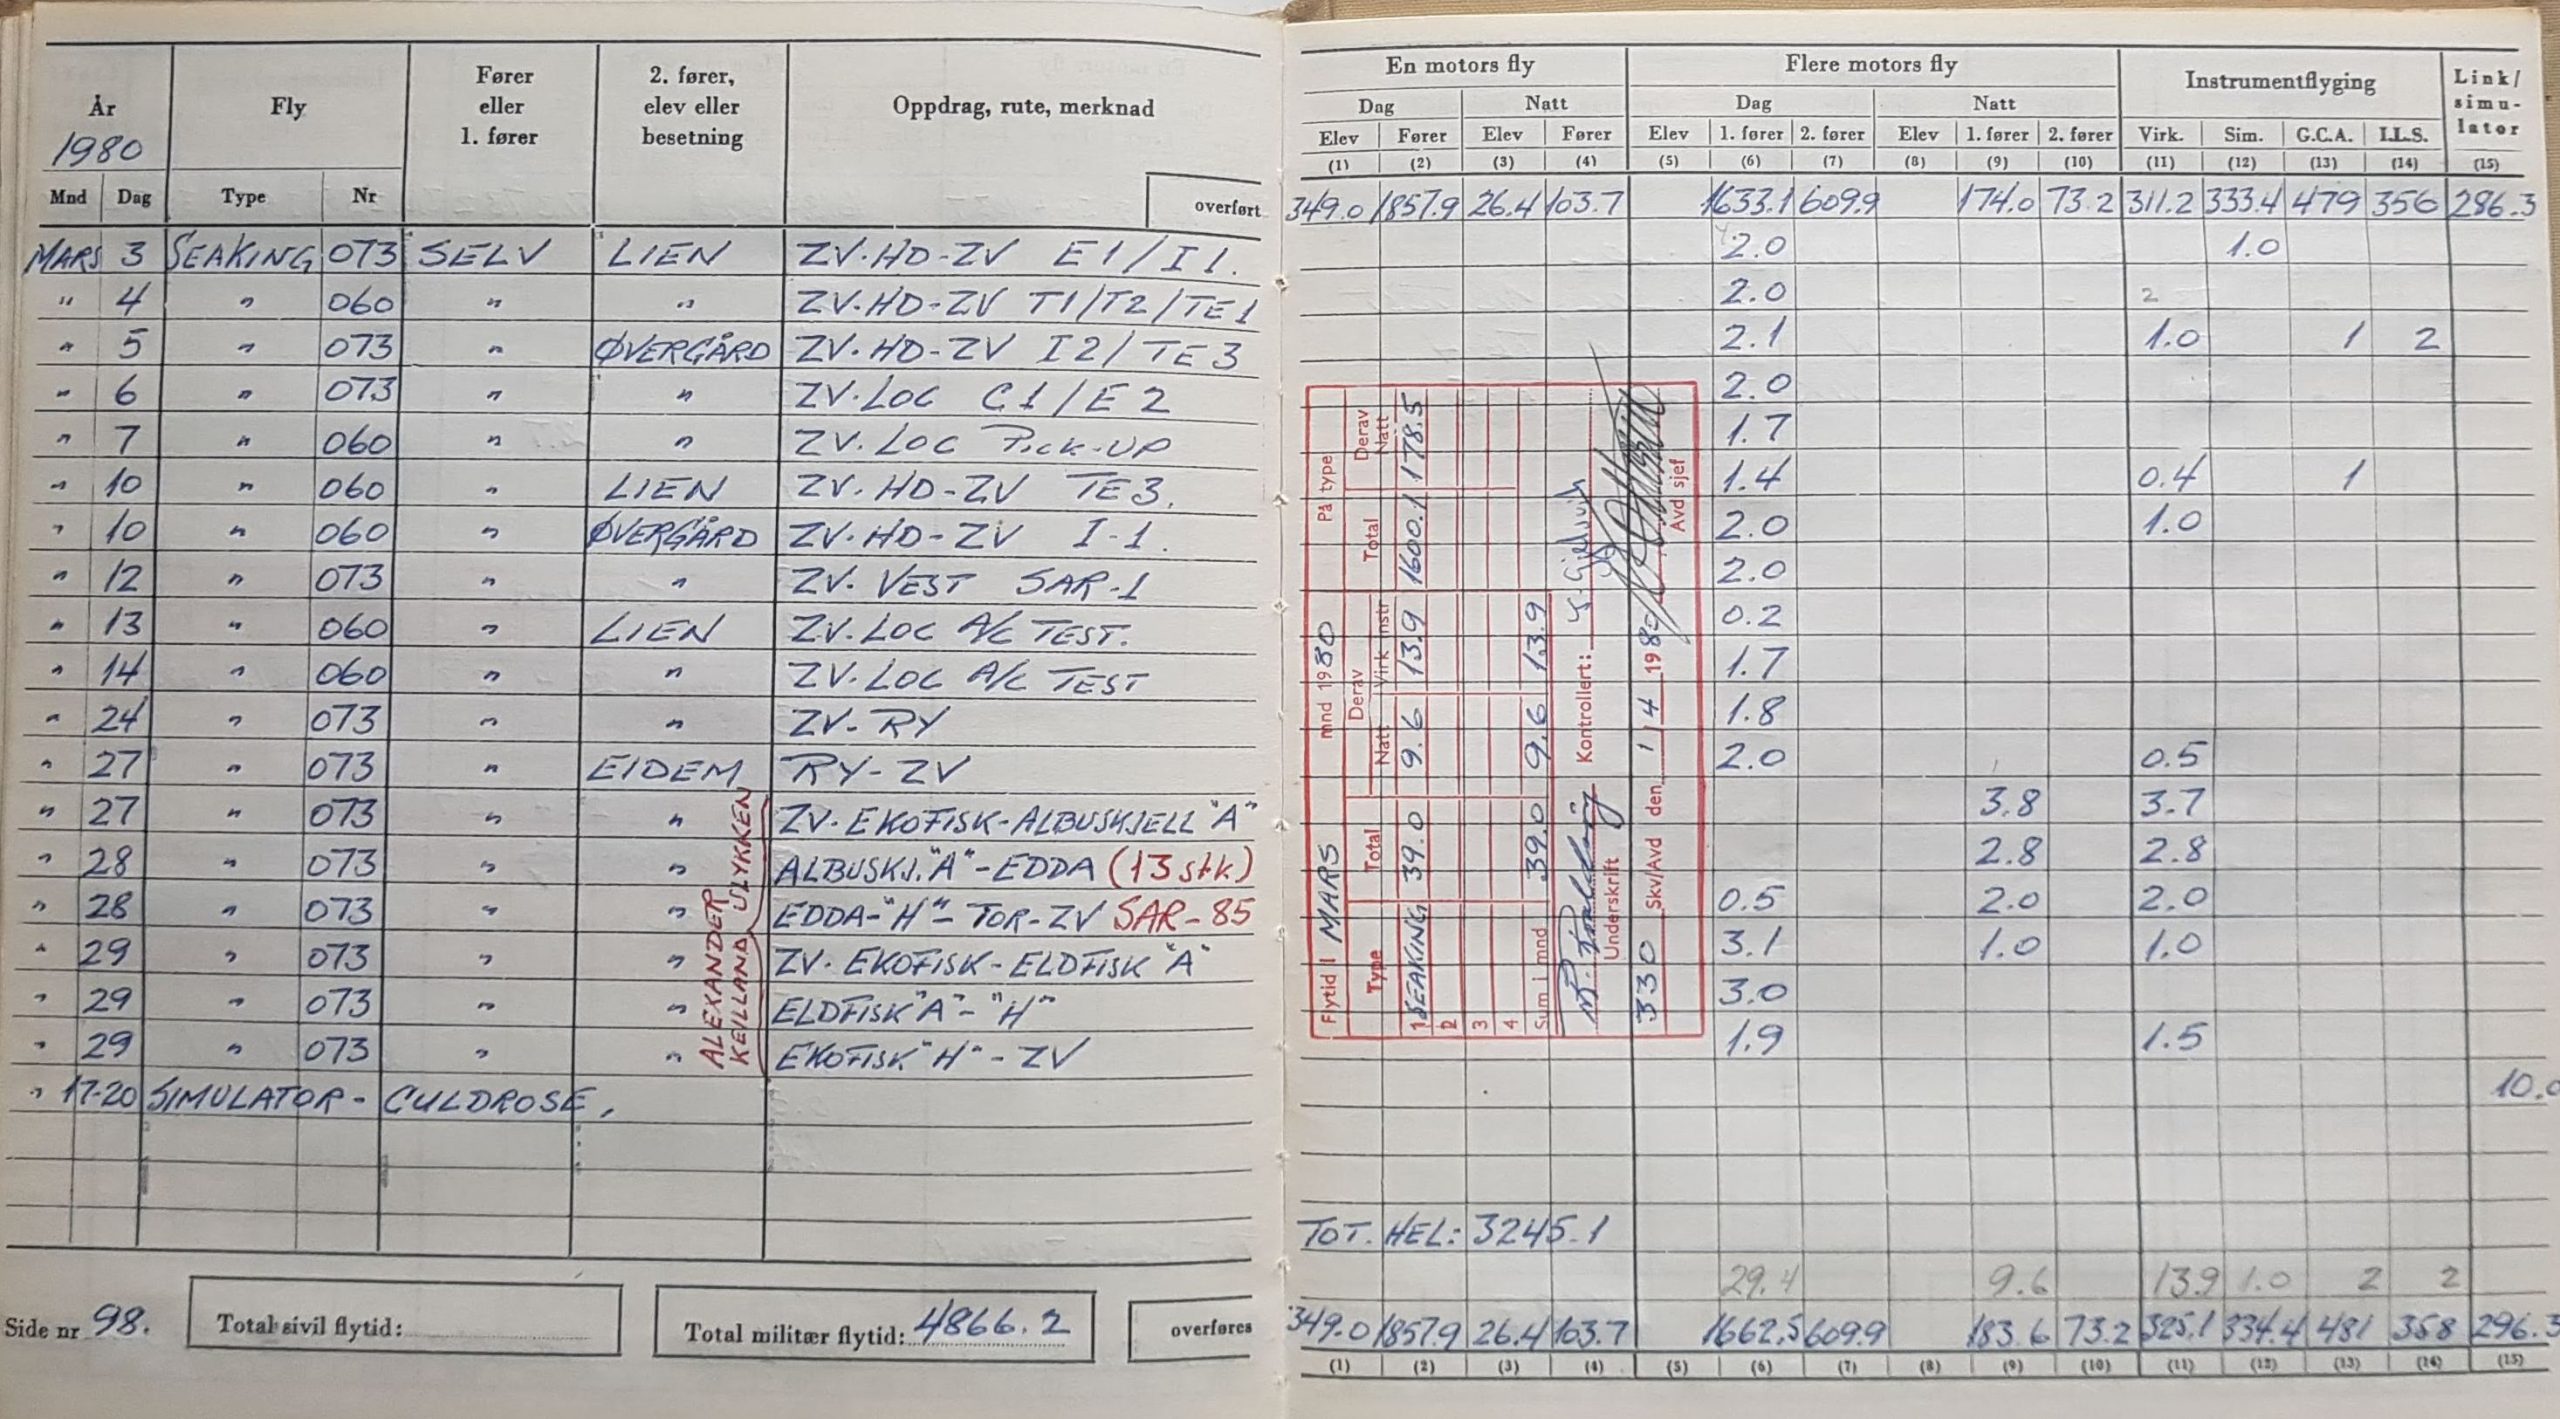 År 1980
Fly
Fører eller 1. fører
2. fører, elev eller besetning
Oppdrag, rute, merknad
Mnd Dag Type Nr
overført
MARS 3 SEAKING 073 SELV LIEN ZV-HD-ZV E1/I1.
" 4 " 060 " " ZV-HD-ZV T1/T2/TE1
" 5 " 073 " ØVERGÅRD ZV-HD-ZV I2/TE3
" 6 " 073 " " ZV-LOC C1/E2
" 7 " 060 " " ZV-LOC PICK-UP
" 10 " 060 " LIEN ZV-HD-ZV TE3.
" 10 " 060 " ØVERGÅRD ZV-HD-ZV I-1.
" 12 " 073 " " ZV-VEST SAR-1
" 13 " 060 " LIEN ZV-LOC A/C TEST.
" 14 " 060 " " ZV-LOC A/C TEST
" 24 " 073 " " ZV-RY
" 27 " 073 " EIDEM RY-ZV
" 27 " 073 " " ZV-EKOFISK-ALBUSKJELL "A"
" 28 " 073 " " ALBUSKJ."A"-EDDA (13 stk)
" 28 " 073 " " EDDA-"H"-TOR-ZV SAR-85
" 29 " 073 " " ZV-EKOFISK-ELDFISK "A"
" 29 " 073 " " ELDFISK "A"-"H"
" 29 " 073 " " EKOFISK "H"-ZV
ALEXANDER
KEILLAND ULYKKEN
" 17-20 SIMULATOR - CULDROSE.
Side nr 98.
Total sivil flytid:
Total militær flytid: 4866.2
overføres
En motors fly Flere motors fly Instrumentflyging Link/simulator
Dag Natt Dag Natt
Elev Fører Elev Fører Elev 1. fører 2. fører Elev 1. fører 2. fører Virk. Sim. G.C.A. I.L.S.
(1) (2) (3) (4) (5) (6) (7) (8) (9) (10) (11) (12) (13) (14) (15)
349.0 1857.9 26.4 103.7 1633.1 609.9 174.0 73.2 311.2 333.4 479 356 286.3
2.0 1.0
2.0 2
2.1 1.0 1 2
2.0
1.7
1.4 0.4 1
2.0 1.0
2.0
0.2
1.7
1.8
2.0 0.5
3.8 3.7
2.8 2.8
0.5 2.0 2.0
3.1 1.0 1.0
3.0
1.9 1.5
10.0
Flytid i MARS mnd 1980 På type
Type Total Derav Natt Virk instr Total Derav Natt
1 SEAKING 39.0 9.6 13.9 1600.1 178.5
2
3
4
Sum i mnd 39.0 9.6 13.9
Underskrift Kontrollert:
330 Skv/Avd den 1/4 1980
Avd sjef
TOT. HEL: 3245.1
29.4 9.6 13.9 1.0 2 2
349.0 1857.9 26.4 103.7 1662.5 609.9 183.6 73.2 325.1 334.4 481 358 296.3
(1) (2) (3) (4) (5) (6) (7) (8) (9) (10) (11) (12) (13) (14) (15)